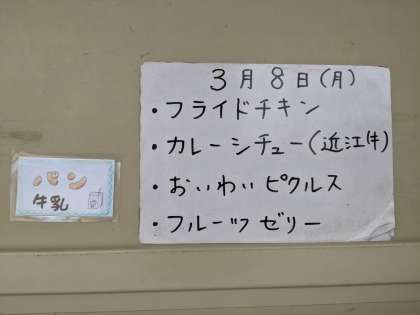 3月8日(月)
・フライドチキン
・カレーシチュー(近江牛)
・おいわいピクルス
・フルーツゼリー
パン
牛乳